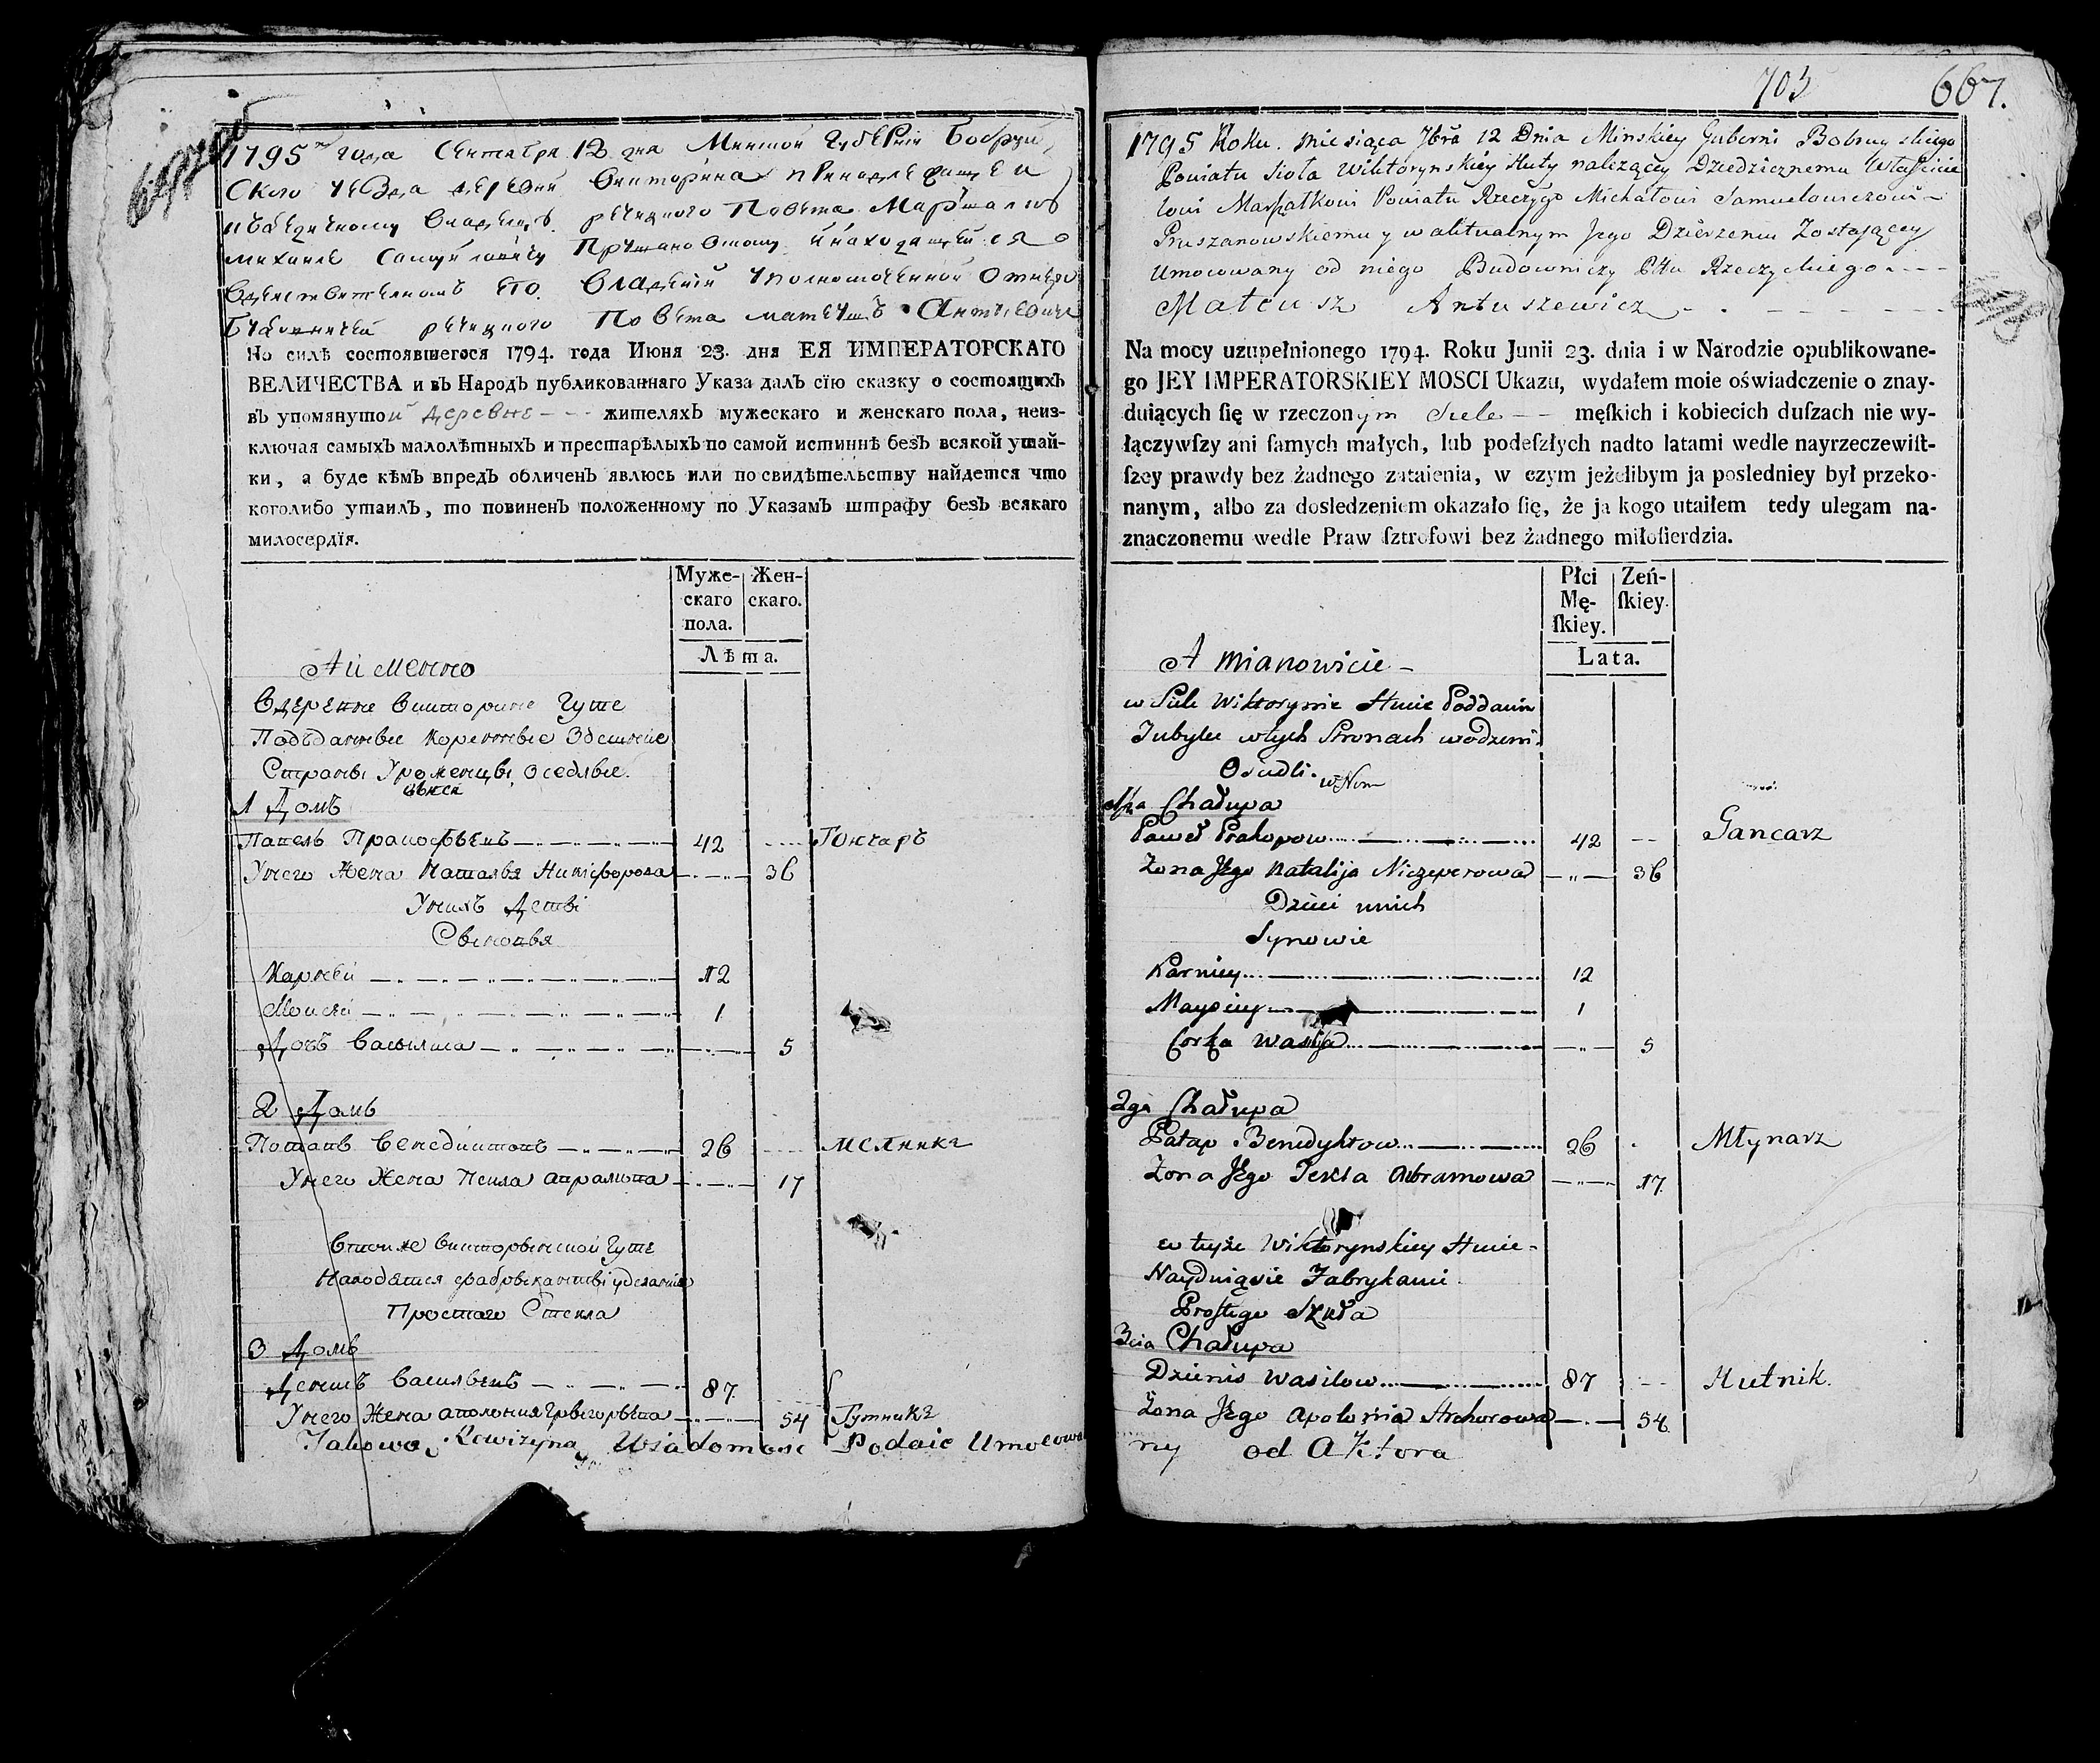 1795 года Сентября 12 дня Минской Губернии Бобруй
ского уезда деревни Викторина принадлежащей
речицкого Повета Маршалку
Михаиле Самуйловичу Прушановскому и находящейся
владении уполномоченной от него
речицкого Повета матеушъ Антушевичъ
По силѣ состоявшегося 1794. года Июня 23. дня ЕЯ ИМПЕРАТОРСКАГО
ВЕЛИЧЕСТВА и въ Народъ публикованнаго Указа далъ сїю сказку о состоящихъ
въ упомянутой деревне - - - жителяхъ мужескаго и женскаго пола, неиз-
ключая самыхъ малолѣтныхъ и престарѣлыхъ по самой истиннѣ безъ всякой утай-
ки, а буде кѣмъ впредъ обличенъ явлюсь или по свидѣтельству найдется что
коголибо утаилъ, то повиненъ положенному по Указамъ штрафу безъ всякаго
милосердїя.
Муже-
скаго
пола.
Жен-
скаго.
Лѣта.
А именно
Вдеревне Викторине Гуте
Подъданные коренные Здешние
Страны Уроженцы оседлые
1 Домъ
Павелъ Прапофьевъ 42 Гончаръ
Унего Жена Наталья Никифорова 36
Унихъ Дети
Сыновья
Карней 12
Мойсей 1
Дочь Василиса 5
2 Домъ
Потапъ Бенедиктовъ 26 мелникъ
Унего Жена Текла Абрамова 17
Втойже Викторынской Гуте
Находятся фабрыканты уделания
Простого Стекла
3 Домъ
Денисъ Васильевъ 87
Унего Жена аполония Грыгорьева 54 Гутникъ
Takowa Rewizyną Wiadomosc Podaie Umocowa
703
667.
1795 Roku. miesiąca 7bra 12 Dnia Minskiey Guberni Bobruyskiego
Powiatu Sioła Wiktorynskiey Huty nalezący Dziedzicznemu Właścicie
lowi Marszałkowi Powiatu Rzeczygo Michałowi Samuelowiczowi
Pruszanowskiemu y w aktualnym Jego Dzierzeniu Zostaiący
Umocowany od niego Budowniczy Pttu Rzeczyckiego
Mateusz Antuszewicz
Na mocy uzupełnionego 1794. Roku Junii 23. dnia i w Narodzie opublikowane-
go JEY IMPERATORSKIEY MOSCI Ukazu, wydałem moie oświadczenie o znay-
duiących ſię w rzeczonym Siele - - męſkich i kobiecich duſzach nie wy-
łączywſzy ani ſamych małych, lub podeſzłych nadto latami wedle nayrzeczewiſt-
ſzey prawdy bez żadnego zataienia, w czym jeżelibym ja posledniey był przeko-
nanym, albo za dosledzeniem okazało ſię, że ja kogo utaiłem tedy ulegam na-
znaczonemu wedle Praw ſztrofowi bez żadnego miłoſierdzia.
Płci
Mę-
ſkiey.
Zeń-
ſkiey.
Lata.
A mianowicie
w Siele Wiktorynie Hucie Poddanni
w tych Stronach
Osiedli.
1sza Chałupa
Paweł Prakopow 42 Gancarz
Zona Jego Natalija Niczeperowa 36
Dzieci unich
Synowie
Karniey 12
Maysiey 1
Corka Wasilisa 5
2ga Chałupa
Patap Benedyktow 26 Młynarz
Zona Jego Tekla Abramowa 17
w teyże Wiktorynskiey Hucie
Nayduiąsie Fabrykanci
Prostego Szkła
3cia Chałupa
Dzienis Wasilow 87 Hutnik.
Zona Jego Apolonia Hrehorowa 54
ny od Aktora